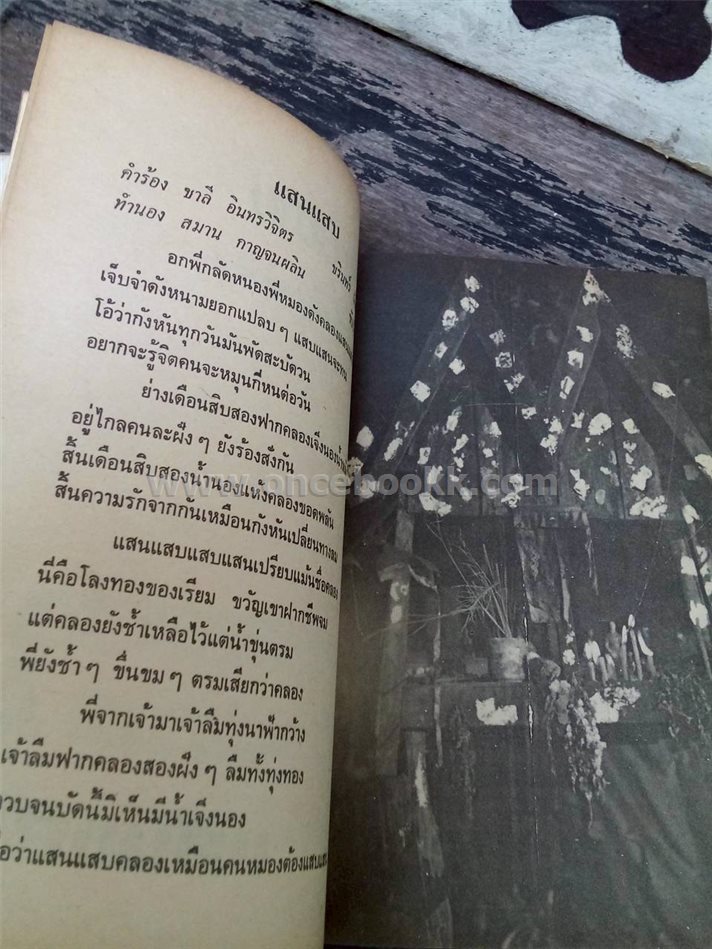 แสนแสบ
คำร้อง ชาลี อินทรวิจิตร
ทำนอง สมาน กาญจนผลิน ชรินทร์
อกพี่กลัดหนองพี่หมองดังคลองแสนแสบ
เจ็บจำดังหนามยอกแปลบ ๆ แสบแสนจะทน
โอ้ว่ากังหันทุกวันมันพัดสะบัดวน
อยากจะรู้จิตคนจะหมุนกี่หนต่อวัน
ย่างเดือนสิบสองฟากคลองเจิ่งนองน้ำ
อยู่ไกลคนละฝั่ง ๆ ยังร้องสั่งกัน
สิ้นเดือนสิบสองน้ำนองแห้งคลองขอดพลัน
สิ้นความรักจากกันเหมือนกังหันเปลี่ยนทางลม
แสนแสบแสบแสนเปรียบแม้นชื่อคลอง
นี่คือโลงทองของเรียม ขวัญเขาฝากชีพจม
แต่คลองยังช้ำเหลือไว้แต่น้ำขุ่นตรม
พี่ยังช้ำ ๆ ขื่นขม ๆ ตรมเสียกว่าคลอง
พี่จากเจ้ามาเจ้าลืมทุ่งนาฟ้ากว้าง
เจ้าลืมฟากคลองสองฝั่ง ๆ ลืมทั้งทุ่งทอง
วบจนบัดนี้มิเห็นมีน้ำเจิ่งนอง
อว่าแสนแสบคลองเหมือนคนหมองต้องแสบ
www.oncebookk.com